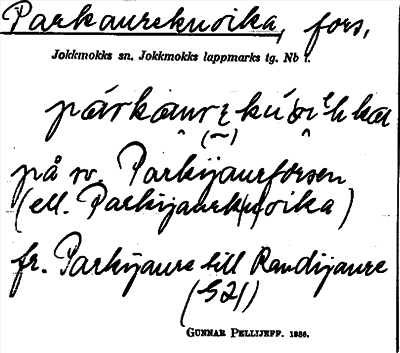 Parkaurekuoika, fors,
Jokkmokks sn. Jokkmokks lappmarks tg. Nb l.
på sv. Parkijaurforsen
(ell. Parkijaurkuoika)
fr. Parkijaure till Randijaure
(S21)
GUNNAR PELLIJEFF. 1956.